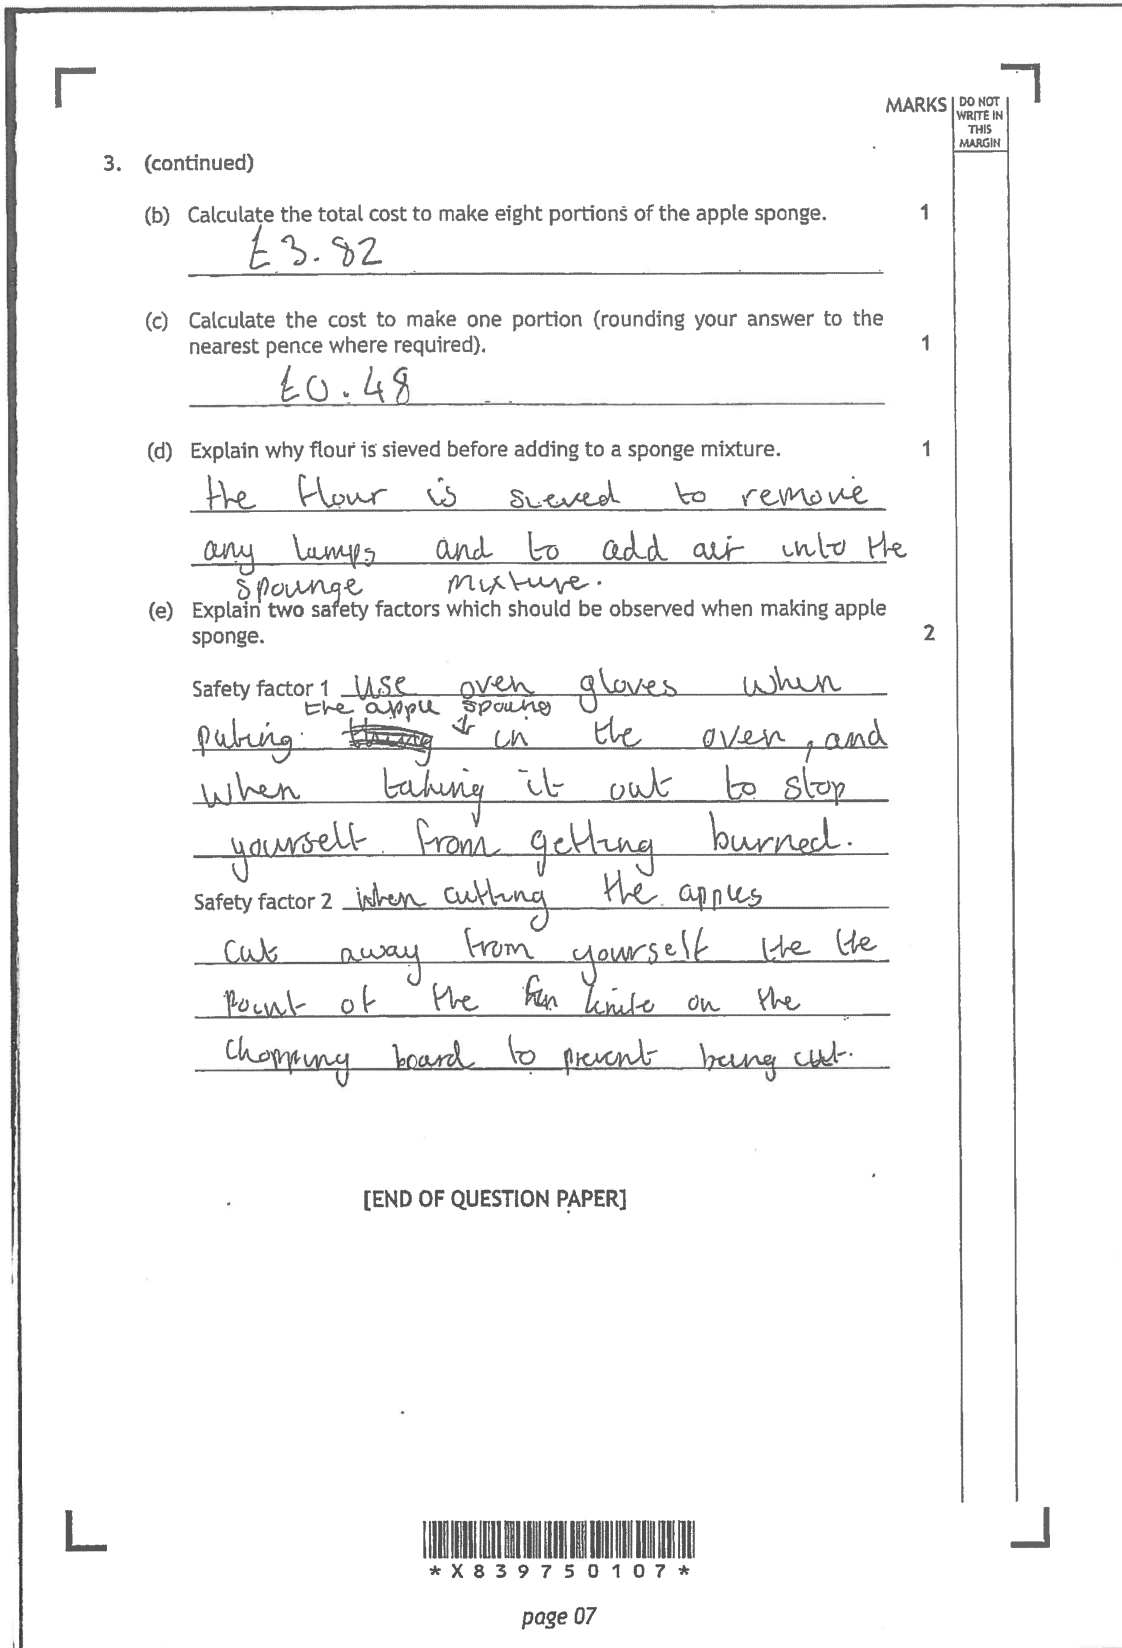 MARKS
DO NOT
WRITE IN
THIS
MARGIN
3. (continued)
(b) Calculate the total cost to make eight portions of the apple sponge. 1
£3.82
(c) Calculate the cost to make one portion (rounding your answer to the
nearest pence where required). 1
£0.48
(d) Explain why flour is sieved before adding to a sponge mixture. 1
the flour is sieved to remove
any lumps and to add air into the
spounge mixture.
(e) Explain two safety factors which should be observed when making apple
sponge. 2
Safety factor 1 use oven gloves when
the apple spoung
puting in the oven, and
when taking it out to stop
yourself from getting burned.
Safety factor 2 when cutting the apples
cut away from yourself the the
point of the knife on the
chopping board to prevent being cut.
[END OF QUESTION PAPER]
*X839750107*
page 07